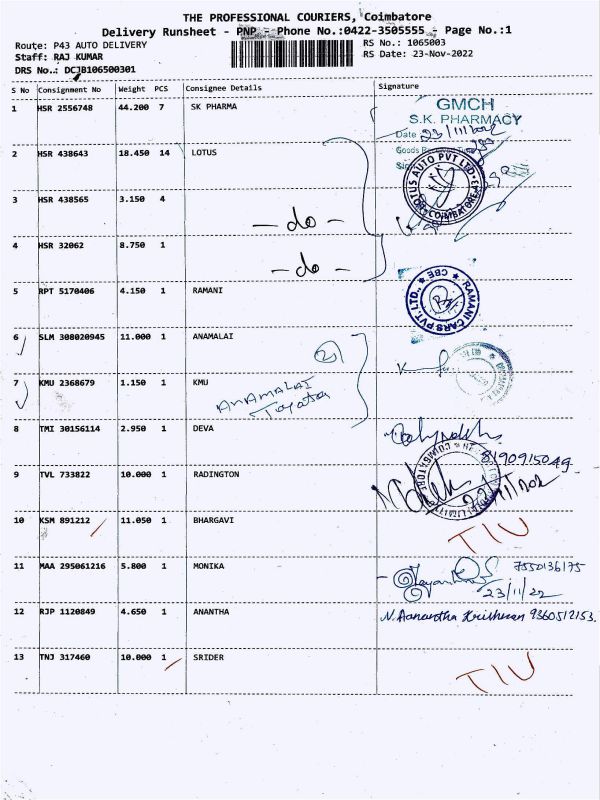 THE PROFESSIONAL COURIERS, Coimbatore
Delivery Runsheet - PNP - Phone No.:0422-3505555 - Page No.:1
Route: P43 AUTO DELIVERY
RS No.: 1065003
Staff: RAJ KUMAR
RS Date: 23-Nov-2022
DRS No.: DCJB106500301
S No Consignment No Weight PCS Consignee Details Signature
1 HSR 2556748 44.200 7 SK PHARMA
GMCH
S.K. PHARMACY
Date 23/11/2022
2 HSR 438643 18.450 14 LOTUS
Goods Received
LOTUS AUTO PVT LTD
COIMBATORE
3 HSR 438565 3.150 4
- do -
4 HSR 32062 8.750 1
- do -
5 RPT 5170406 4.150 1 RAMANI
RAMANI CARS PVT. LTD., CBE
6 SLM 308020945 11.000 1 ANAMALAI
7 KMU 2368679 1.150 1 KMU
ANAMALAI
Toyota
8 TMI 30156114 2.950 1 DEVA
8190915049
9 TVL 733822 10.000 1 RADINGTON
COIMBATORE
10 KSM 891212 11.050 1 BHARGAVI
TIU
11 MAA 295061216 5.800 1 MONIKA
7550136175
23/11/22
12 RJP 1120849 4.650 1 ANANTHA
N. Aanantha Krishnan 9360512153.
13 TNJ 317460 10.000 1 SRIDER
TIU